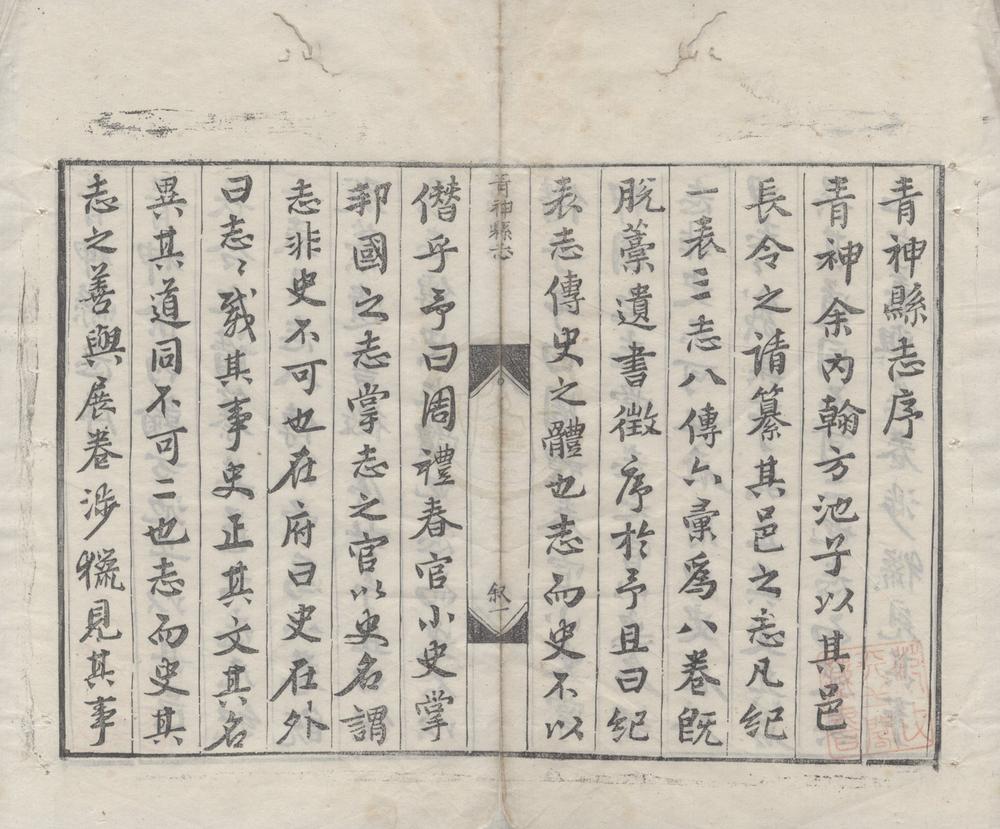 青神縣志序
青神余内翰方池子以其邑
長令之請纂其邑之志凡紀
一表三志八傳六彙爲八卷既
脫藁遺書徵序於予且曰紀
表志傳史之體也志而史不以
青神縣志
叙一
僭乎予曰周禮春官小史掌
邦國之志掌志之官以史名謂
志非史不可也在府曰史在外
曰志志哉其事史正其文其名
異其道同不可二也志而史其
志之善與展卷涉獵見其事